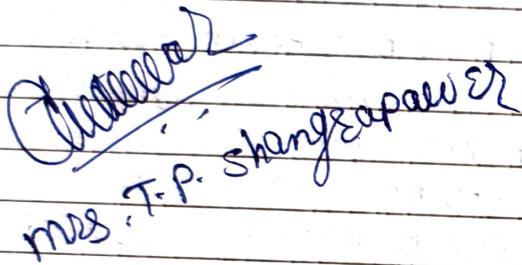 Mrs. T.P. Shangrapawer